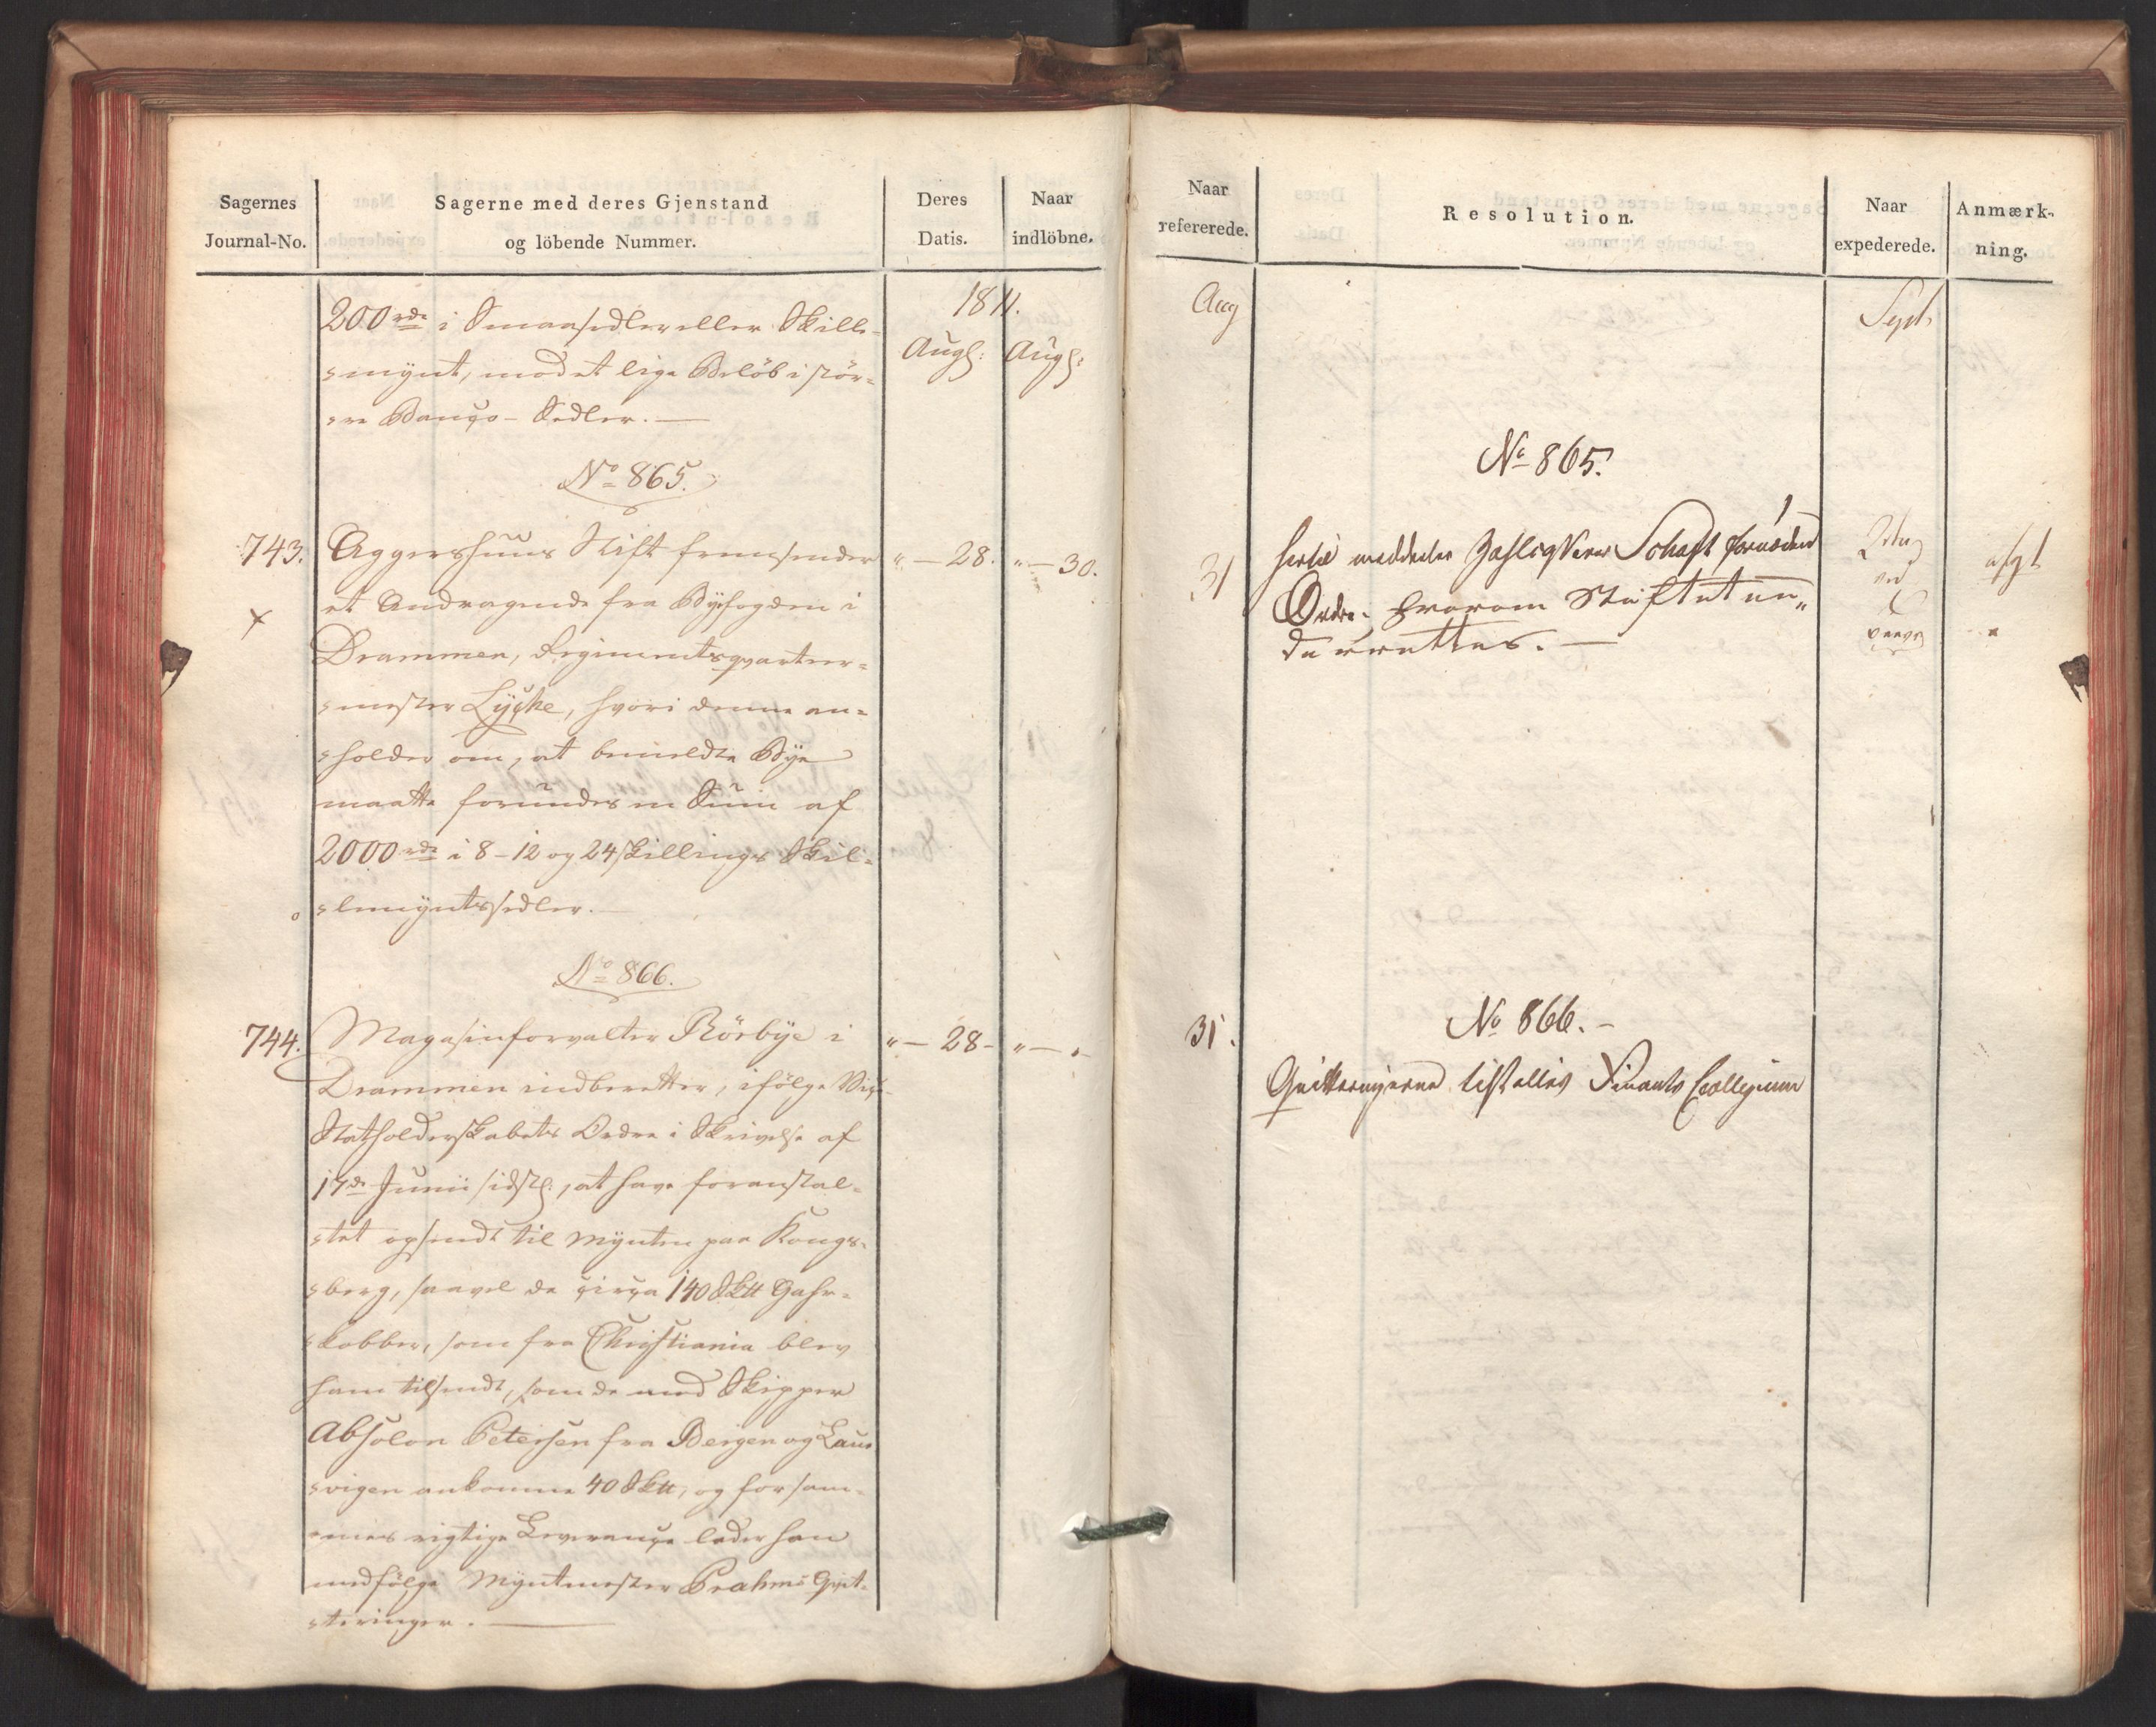 Sagernes
Journal-No.
Sagerne med deres Gjenstand
og löbende Nummer.
Deres
Datis.
Naar
indlöbne.
200 rdr i Smaasedler eller Skille-
-mynt, mod et lige Beløb i stör-
-re Banco-Sedler. —
1811.
Augs: Augs:
No 865.
743. Aggershuus Stift fremsender " — 28. " — 30.
et Andragende fra Byefogden i
Drammen, Regimentsqvarteer-
-mester Lycke, hvori denne an-
-holder om, at bemeldte Bye
maatte forundes en Sum af
2000 rdr i 8-12 og 24 skillings Skil-
-lemyntssedler. —
No 866.
744. Magasinforvalter Rörbye i " — 28 - " — "
Drammen indberetter, ifølge Vice-
Statholderskabets Ordre i Skrivelse af
17de Junii sidstl:, at have foranstal-
-tet opsendt til Mynten paa Kongs-
-berg, saavel de circa 140 Sk℔ Gahr-
-kobber, som fra Christiania blev
ham tilsendt, som de med Skipper
Absolon Petersen fra Bergen og Laur-
-vigen ankomne 40 Sk℔, og for sam-
-mes rigtige Leverance lader han
medfølge Myntmester Prahms Qvit-
-teringer. —
Naar
refererede.
Resolution.
Naar
expederede.
Anmærk-
ning.
Aug
Sept.
No 865.
31 hertil meddeeles Zahlqvteer Schaft fornøden 2den afgt
Ordre. hvorom Stiftet un-
derrettes. —
No 866. -
31. Qvitteringerne tilstilles Finants Collegium